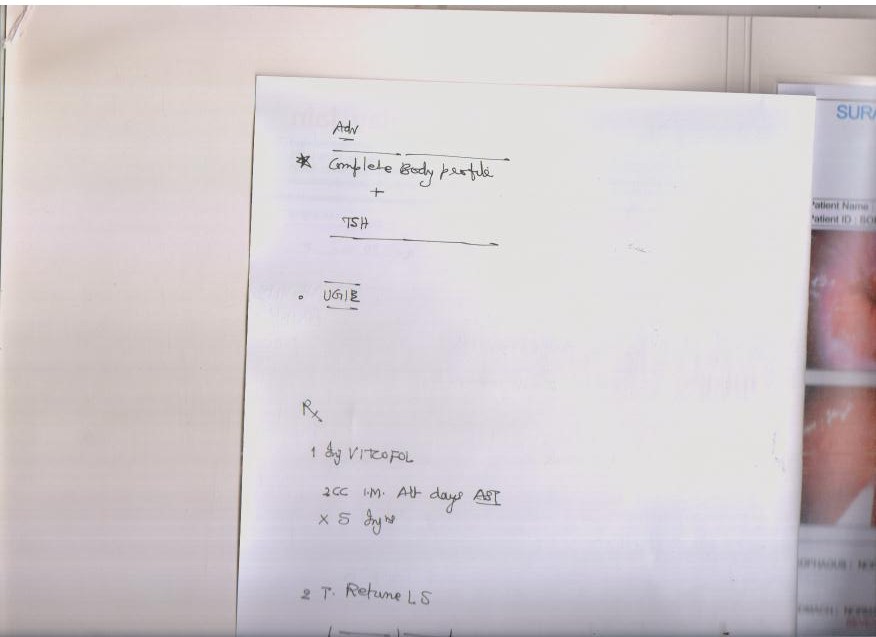 Adv
* Complete Body profile
+
TSH
• UGIE
Rx
1 Inj VITCOFOL
2CC I.M. Alt days AST
x 5 Inj ns
2 T. Retune LS
SURA
Patient Name :
Patient ID : SO